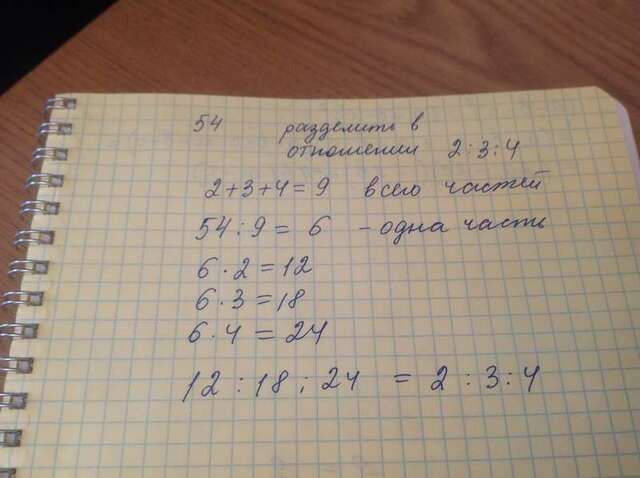 54 разделить в
отношении 2:3:4
2+3+4=9 всего частей
54:9= 6 - одна часть
6·2=12
6·3=18
6·4=24
12:18:24 = 2:3:4